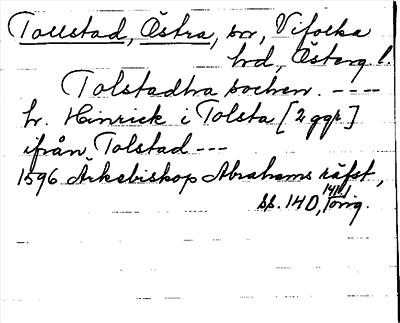 Tollstad, Östra, sn, Vifolka
hd, Österg l.
Tolstadha sochen. ----
h. Hinrick i Tolsta [2 ggr]
ifrån Tolstad ---
1596 Ärkebiskop Abrahams räfst,
ss. 140, orig.